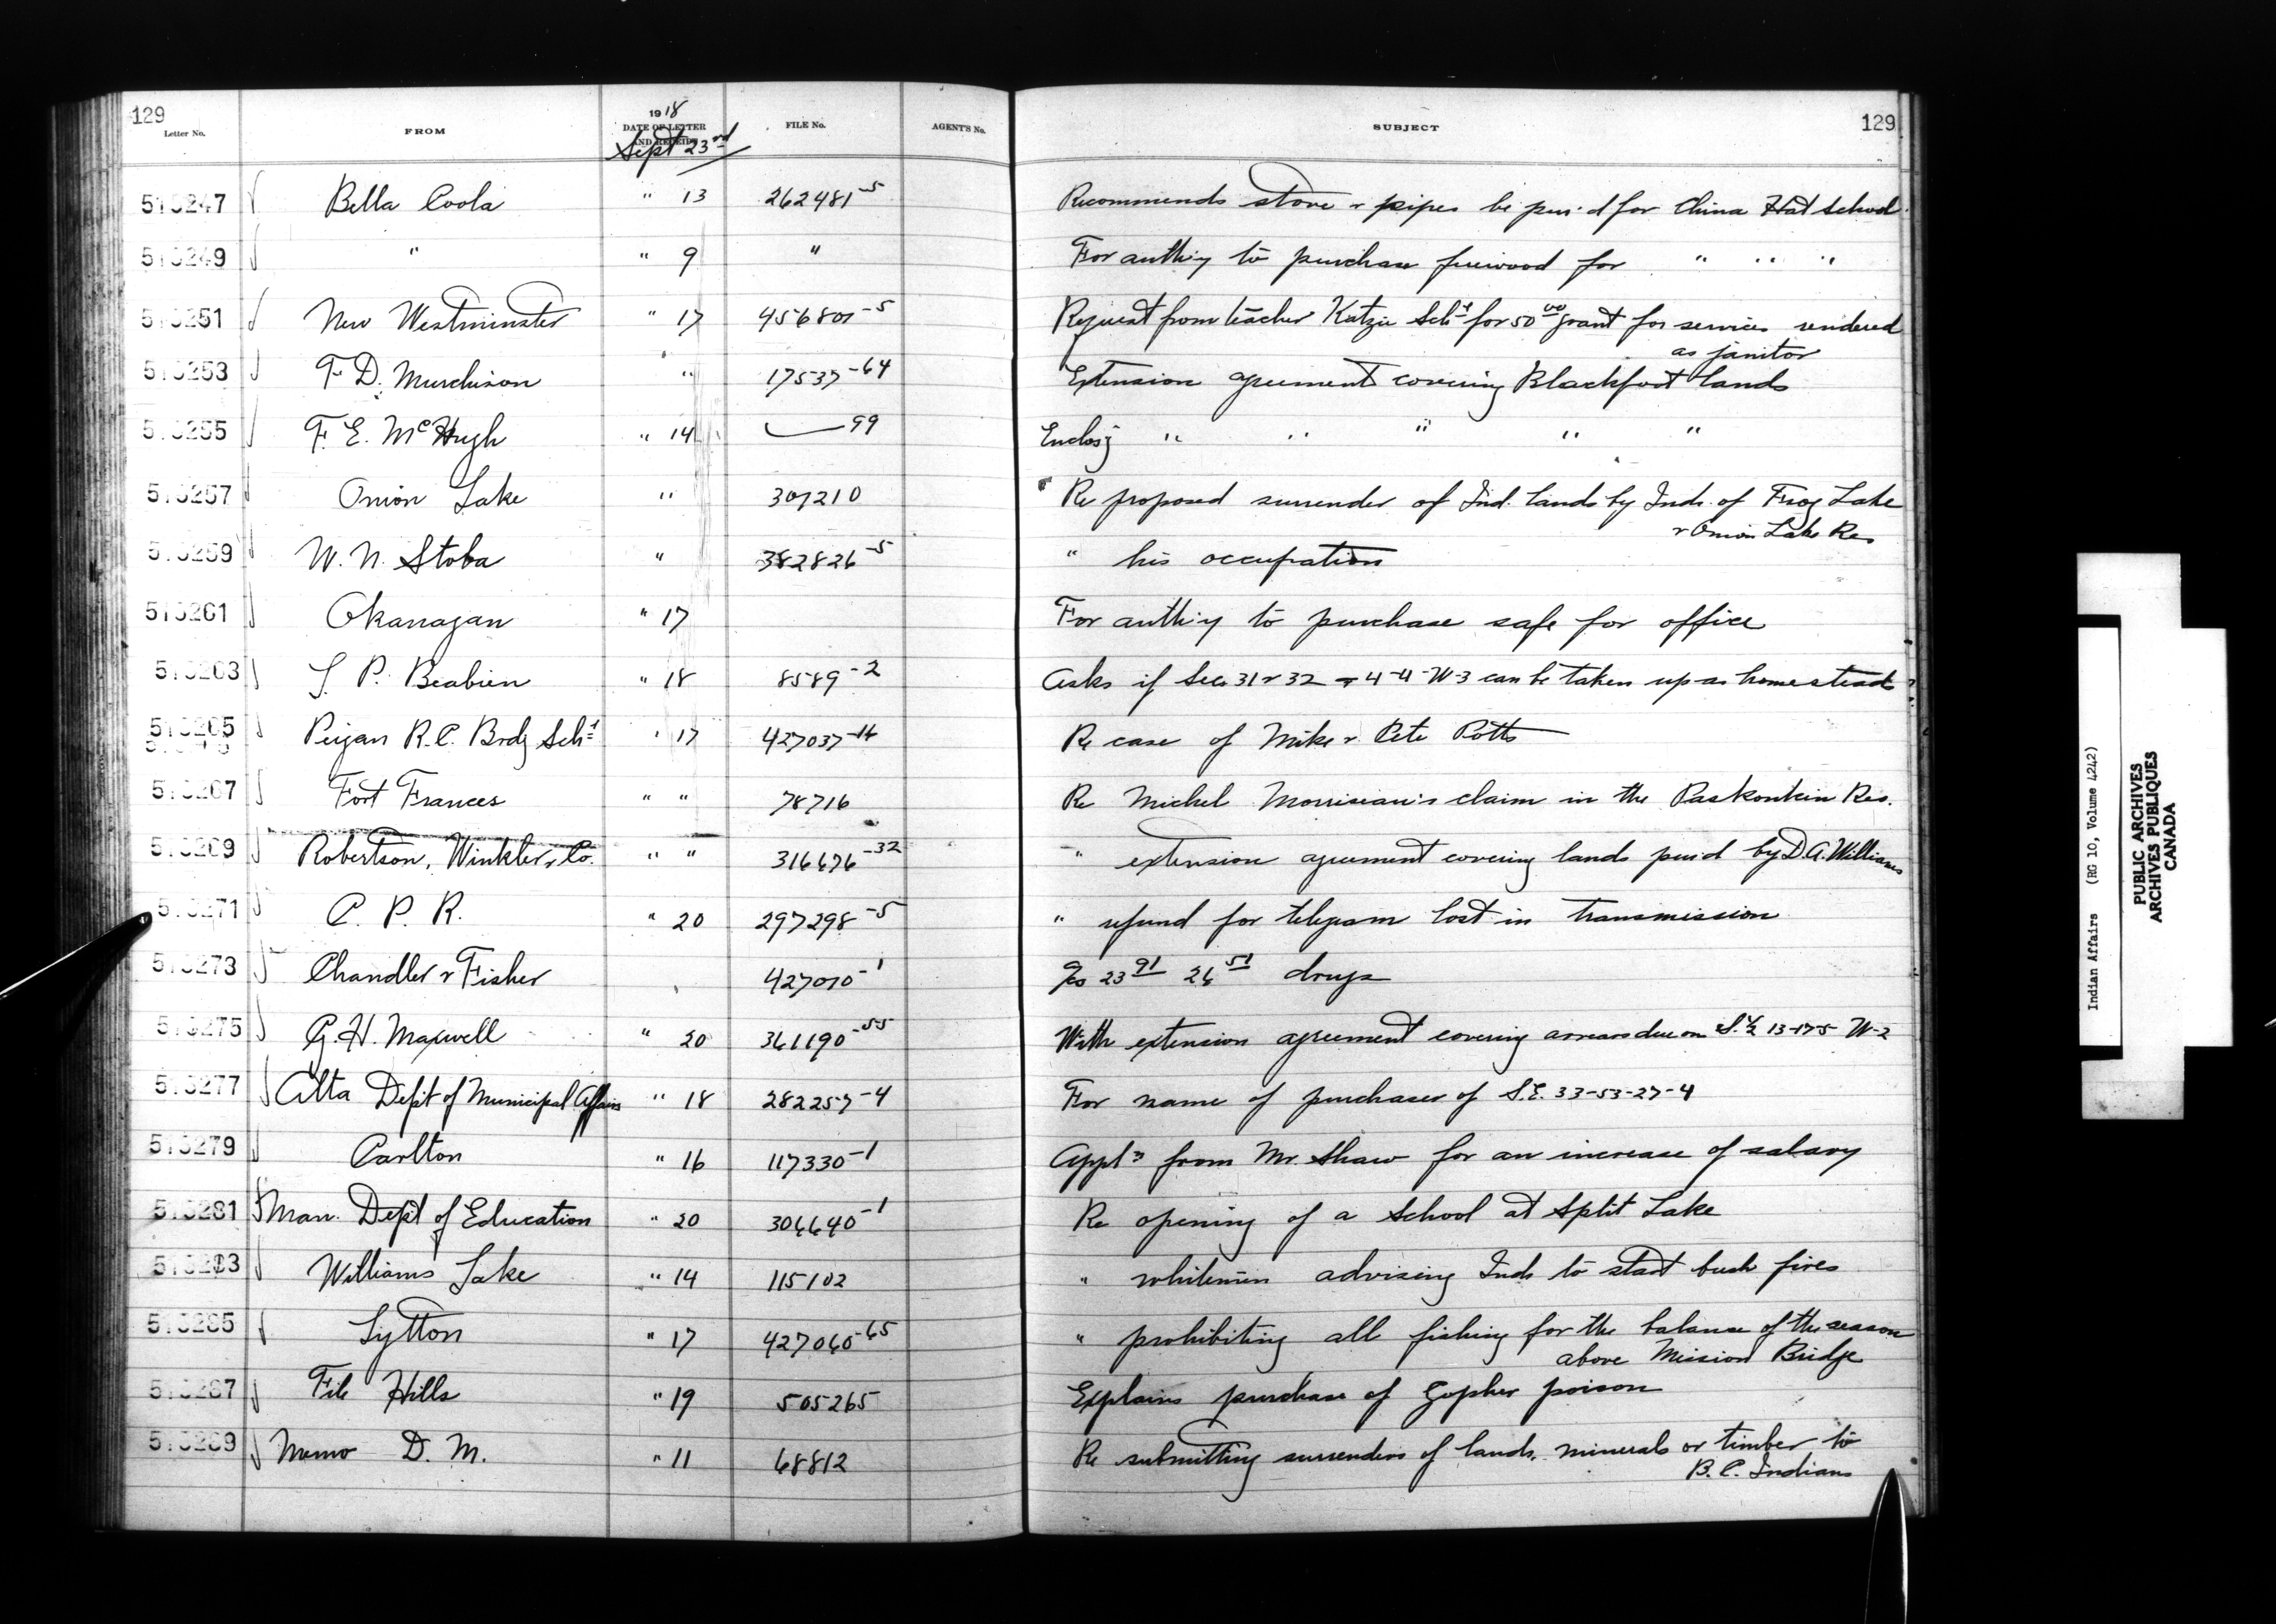 129
Letter No. FROM 1918 DATE OF LETTER AND RECEIPT FILE No. AGENT'S No. SUBJECT 129
Sept 23rd
510247 Bella Coola " 13 262481-5 Recommends stove & pipes be pur'd for China Hat School.
510249 " " 9 " For auth'y to purchase firewood for " " "
510251 New Westminster " 17 456801-5 Request from teacher Katzie Schl for 50 00 grant for services rendered
as janitor
510253 F. D. Murchison " 17537-64 Extension agreement covering Blackfoot lands
510255 F. E. McHugh " 14 -99 Enclos'g " " " " "
510257 Onion Lake " 307210 Re proposed surrender of Ind. lands by Inds. of Frog Lake
& Onion Lake Res
510259 W. N. Stoba " 382826-5 " his occupation
510261 Okanagan " 17 For auth'y to purchase safe for office
510263 S. P. Beabien " 18 8589-2 Asks if Secs 31 & 32 - 4-4-W-3 can be taken up as homesteads
510265 Peigan R.C. Brdg Schl " 17 427037-14 Re case of Mike & Pete Potts
510267 Fort Frances " " 78716 Re Michel Morriseau's claim in the Paskonkin Res.
510269 Robertson, Winkler & Co. " " 316676-32 " extension agreement covering lands pur'd by D. A. Williams
510271 C. P. R. " 20 297298-5 " refund for telegram lost in transmission
510273 Chandler & Fisher 427010-1 23 91 26 51 drugs
510275 G. H. Maxwell " 20 361190-55 With extension agreement covering arrears due on S. 1/2 13-17-5 W-2
510277 Alta Dep't of Municipal Affairs " 18 282257-4 For name of purchaser of S.E. 33-53-27-4
510279 Carlton " 16 117330-1 Appln from Mr. Shaw for an increase of salary
510281 Man. Dep't of Education " 20 306640-1 Re opening of a School at Split Lake
510283 Williams Lake " 14 115102 " whitemen advising Inds to start bush fires
510285 Lytton " 17 427060-65 " prohibiting all fishing for the balance of the season
above Mission Bridge
510287 File Hills " 19 505265 Explains purchase of Gopher poison
510289 Memo D. M. " 11 68812 Re submitting surrenders of lands, minerals or timber to
B. C. Indians
Indian Affairs (RG 10, Volume 4242)
PUBLIC ARCHIVES
ARCHIVES PUBLIQUES
CANADA